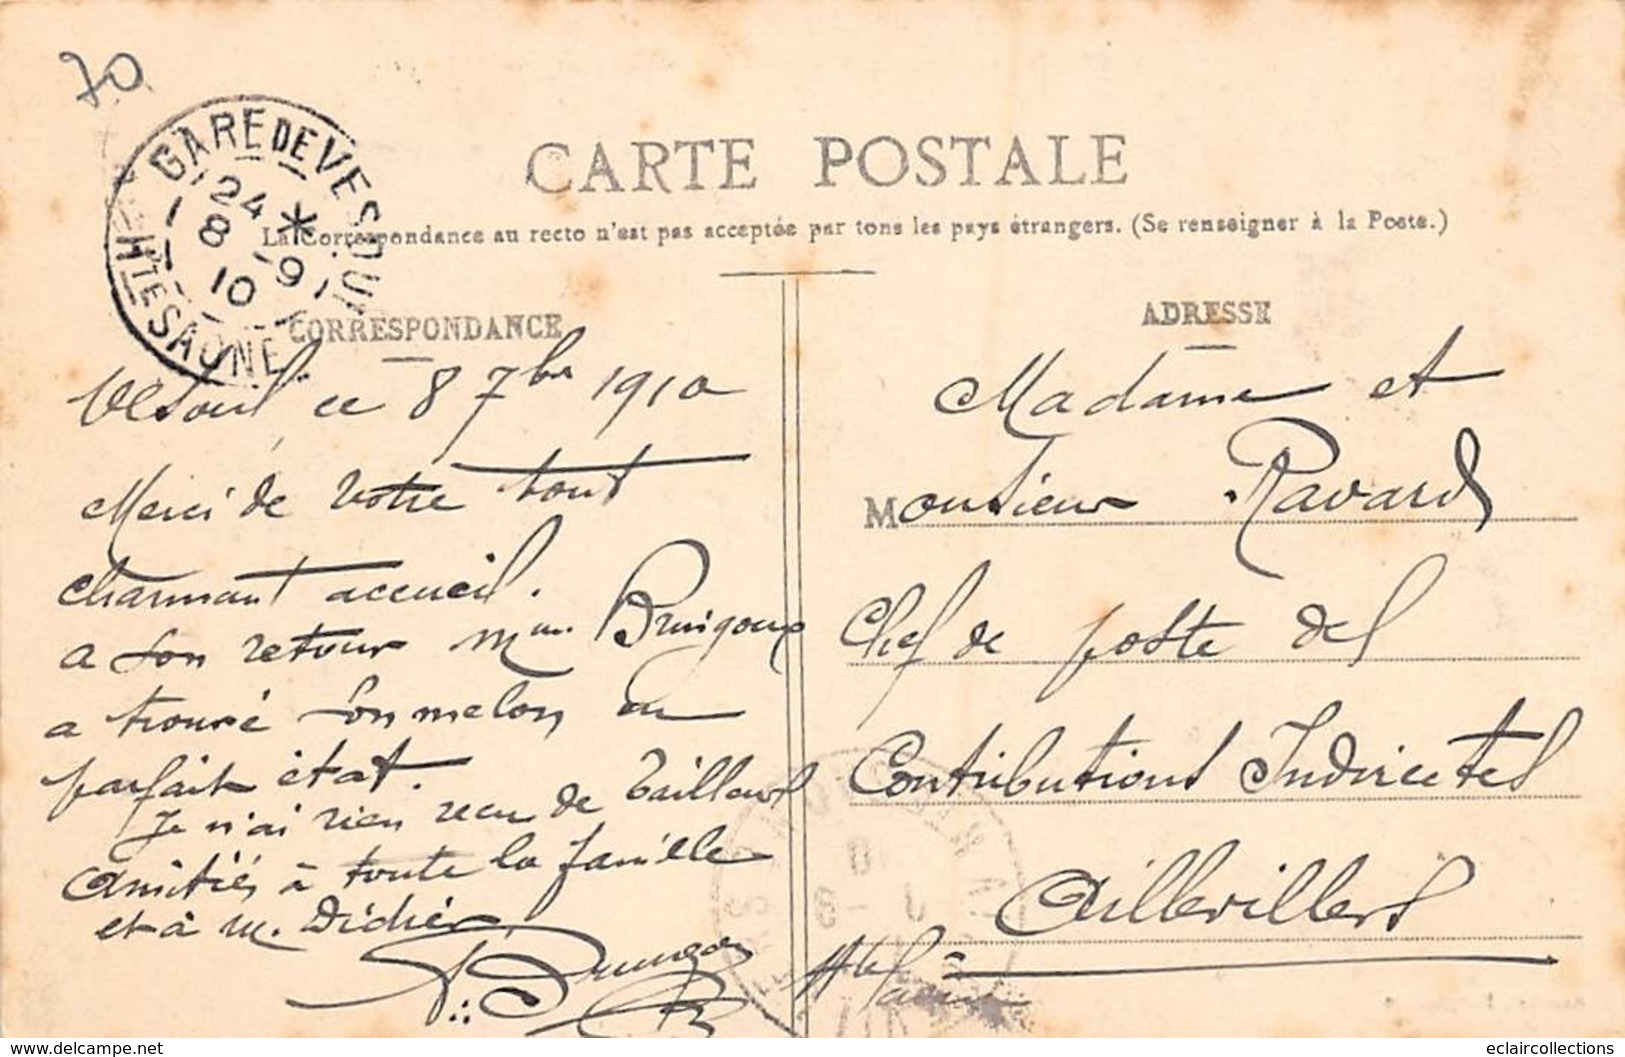 70
GARE DE VESOUL
24 *
8 -9
10
HTE SAONE
CARTE POSTALE
La Correspondance au recto n'est pas acceptée par tous les pays étrangers. (Se renseigner à la Poste.)
CORRESPONDANCE
Vesoul ce 8 7bre 1910
Merci de votre tout
charmant accueil.
a son retour Mme
a trouvé son melon en
parfait état.
Je n'ai rien reçu de Tailleurs
Amitiés à toute la famille
et à M. Didier
ADRESSE
Madame et
Monsieur Ravard
Chef de poste des
Contributions Indirectes
Aillevillers
Hte Saône
eclaircollections
www.delcampe.net